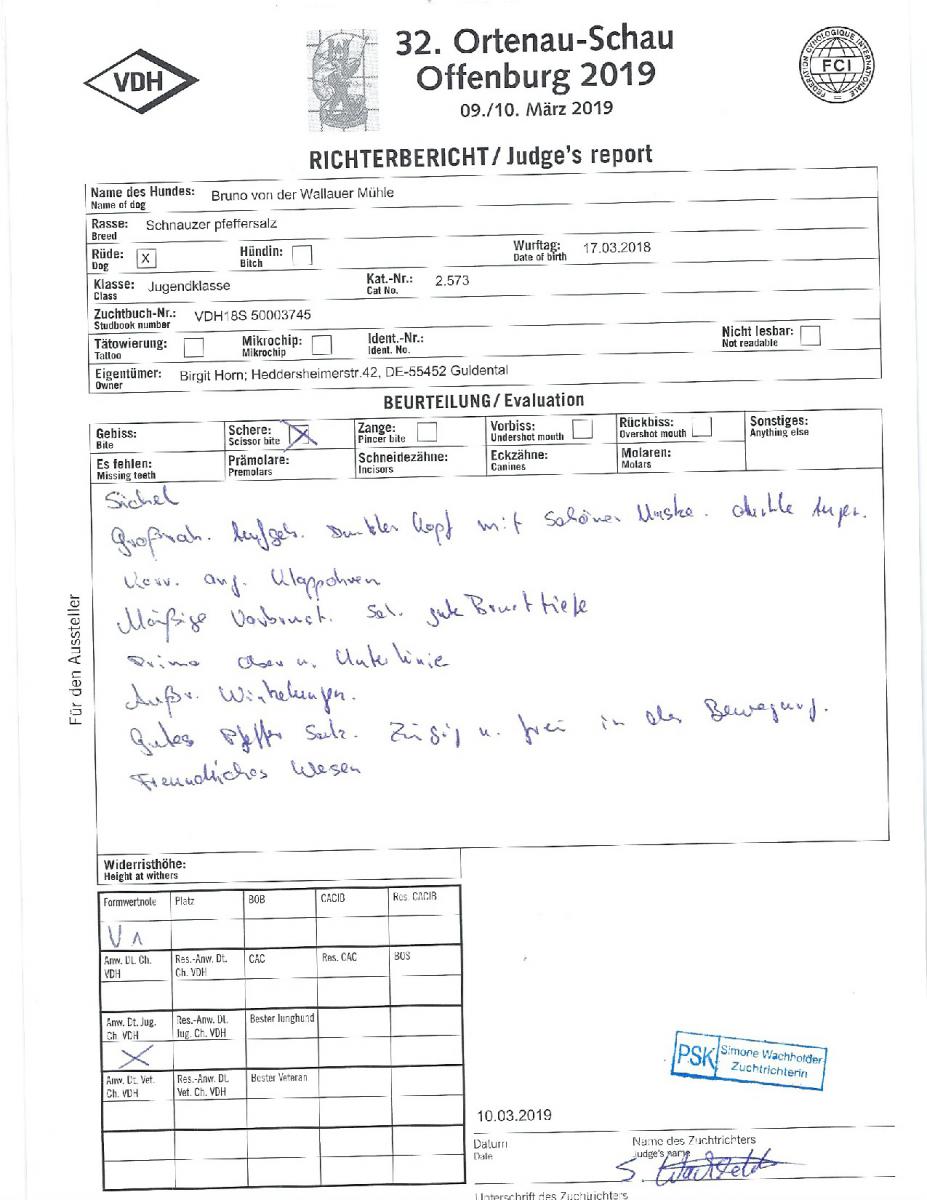 VDH
32. Ortenau-Schau
Offenburg 2019
09./10. März 2019
FEDERATION CYNOLOGIQUE INTERNATIONALE
FCI
RICHTERBERICHT/Judge's report
Name des Hundes: Bruno von der Wallauer Mühle
Name of dog
Rasse: Schnauzer pfeffersalz
Breed
Rüde: X Hündin: Wurftag: 17.03.2018
Dog Bitch Date of birth
Klasse: Jugendklasse Kat.-Nr.: 2.573
Class Cat No.
Zuchtbuch-Nr.: VDH18S 50003745
Studbook number
Tätowierung: Mikrochip: Ident.-Nr.: Nicht lesbar:
Tattoo Mikrochip Ident. No. Not readable
Eigentümer: Birgit Horn; Heddersheimerstr.42, DE-55452 Guldental
Owner
BEURTEILUNG/Evaluation
Gebiss: Schere: X Zange: Vorbiss: Rückbiss: Sonstiges:
Bite Scissor bite Pincer bite Undershot mouth Overshot mouth Anything else
Es fehlen: Prämolare: Schneidezähne: Eckzähne: Molaren:
Missing teeth Premolars Incisors Canines Molars
Sichel
Großrah. Aufgeb. Dunkler Kopf mit schöner Maske. dunkle Augen.
Korr. ang. Klappohren
Mäßige Vorbrust. Seh. gute Brusttiefe
Prima Ober u. Unterlinie
Winkelungen.
Gutes Pfeffer Salz. Zügig u. frei in der Bewegung.
Freundliches Wesen
Für den Aussteller
Widerristhöhe:
Height at withers
Formwertnote Platz BOB CACIB Res. CACIB
V 1
Anw. Dt. Ch. VDH Res.-Anw. Dt. Ch. VDH CAC Res. CAC BOS
Anw. Dt. Jug. Ch. VDH Res.-Anw. Dt. Jug. Ch. VDH Bester Junghund
X
Anw. Dt. Vet. Ch. VDH Res.-Anw. Dt. Vet. Ch. VDH Bester Veteran
PSK Simone Wachholder
Zuchtrichterin
10.03.2019
Datum Name des Zuchtrichters
Date Judge's name
Unterschrift des Zuchtrichters